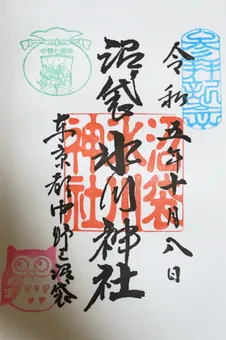 参拝記念
令和五年十月八日
沼袋氷川神社
沼袋氷川神社
東京都中野区沼袋